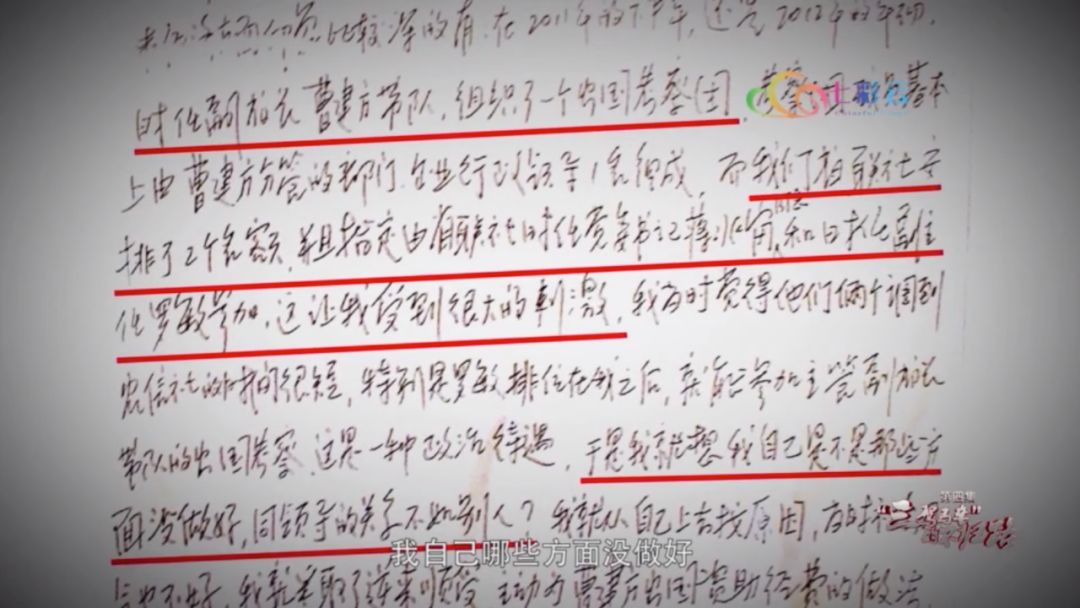 比较深的有，在2011年的下半年，还是2012年的年初，
时任副省长曹建方带队，组织了一个出国考察团，考察团成员基本
上由曹建方分管的部门、企业行政领导1名组成，而我们省联社安
排了2个名额，并且指定由省联社时任党委书记和时任副主
任罗敏参加，这让我受到很大的刺激，我当时觉得他们俩个调到
农信社的时间很短，特别是罗敏排位在我之后，亲自参加主管副省长
带队的出国考察，这是一种政治待遇，于是我就想我自己是不是那些方
面没做好，同领导的关系不如别人？我就从自己上去找原因，
我自己哪些方面没做好
我就采取了逆来顺受 主动为曹建方出国资助经费的做法，
七彩云
第四集